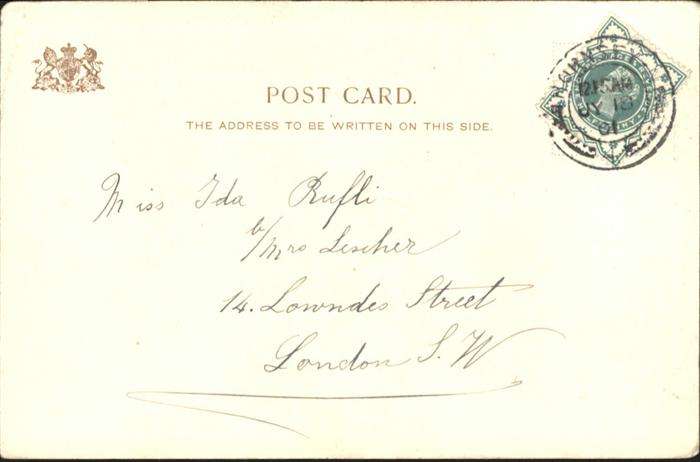 POST CARD.
THE ADDRESS TO BE WRITTEN ON THIS SIDE.
12.15 AM
JY 18
01
Miss Ida Rufli
c/Mrs Lescher
14. Lowndes Street
London S.W